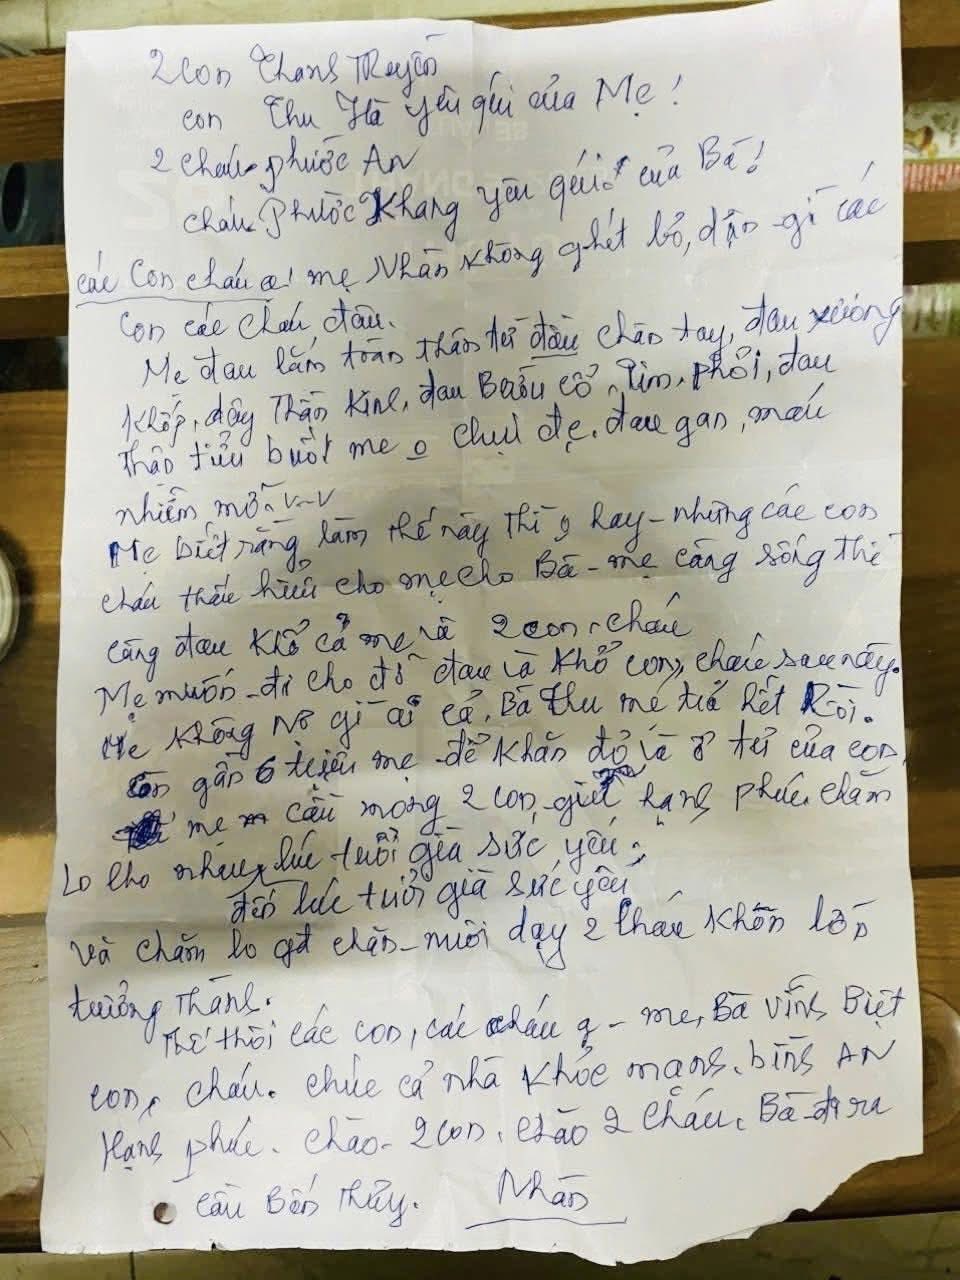 2 con Thanh Truyền
con Thu Hà yêu qúi của Mẹ!
2 cháu phước AN
cháu Phước Khang yêu qúi của Bà!
các con cháu ạ! mẹ Nhàn không ghét bỏ, dận gì các
con các cháu đâu.
Mẹ đau lắm toàn thân từ đầu chân tay, đau xương
khớp, dây Thần kinh, đau Bướu cổ, Tim, phổi, đau
thận tiểu buốt mẹ o chụi đc. đau gan, máu
nhiễm mỡ v-v
Mẹ biết rằng làm thế này thì o hay - nhưng các con
cháu thấu hiểu cho mẹ cho Bà - mẹ càng sống thì
càng đau khổ cả mẹ và 2 con, cháu
Mẹ muốn đi cho đỡ đau và khổ con, cháu sau này.
Mẹ không nợ gì ai cả, Bà thu mẹ trả hết Rồi.
còn gần 6 triệu mẹ để khăn đỏ và ở tủ của con,
mẹ cầu mong 2 con giữ hạnh phúc chăm
Lo cho nhau lúc tuổi già sức yếu.
đến lúc tuổi già sức yếu
và chăm lo gđ chăn - nuôi dạy 2 cháu khôn lớn
trưởng thành.
Thế thôi các con, các cháu ạ - mẹ, Bà vĩnh Biệt
con, cháu. chúc cả nhà khỏe mạnh, bình AN
Hạnh phúc. chào 2 con, chào 2 cháu, Bà đi ra
cầu Bến Thủy. Nhàn